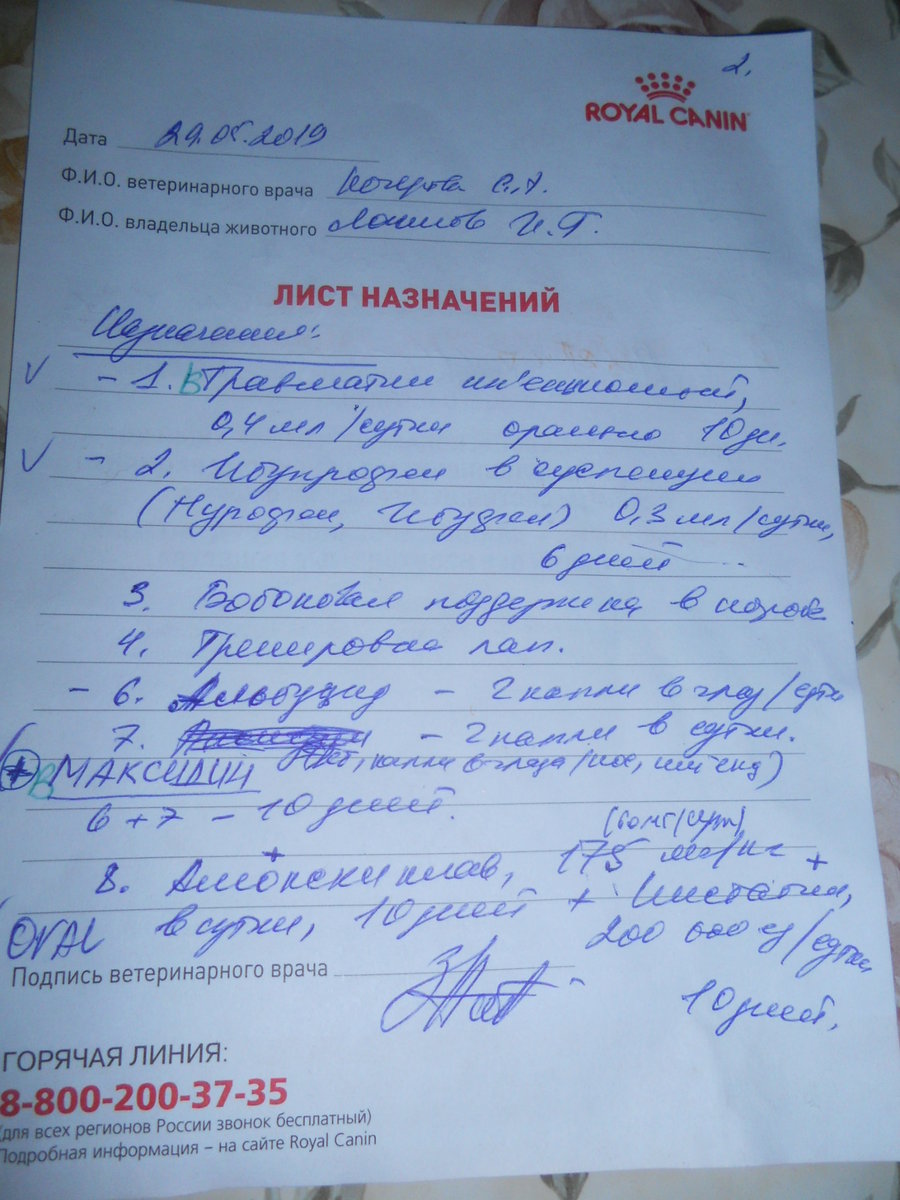 2.
ROYAL CANIN
Дата 29.05.2019
Ф.И.О. ветеринарного врача С.А.
Ф.И.О. владельца животного И.Г.
ЛИСТ НАЗНАЧЕНИЙ
Назначения:
- 1. Травматин ин'екционный,
0,4 мл/сутки орально 10 дн.
- 2. Ибупрофен в суспензии
(Нурофен, Ибуфен) 0,3 мл/сутки,
6 дней
3. Боковая поддержка в коробе
4. Тренировка лап.
- 6. - 2 капли в глаз/сутки
7. - 2 капли в сутки.
+ МАКСИДИН капли в глаза/нос,
6 + 7 - 10 дней.
(60мг/сут)
8. Амоксиклав, 175 мг/кг +
в сутки, 10 дней + Нистатин,
ORAL 200 000 ед/сутки
Подпись ветеринарного врача
10 дней.
ГОРЯЧАЯ ЛИНИЯ:
8-800-200-37-35
(для всех регионов России звонок бесплатный)
Подробная информация – на сайте Royal Canin